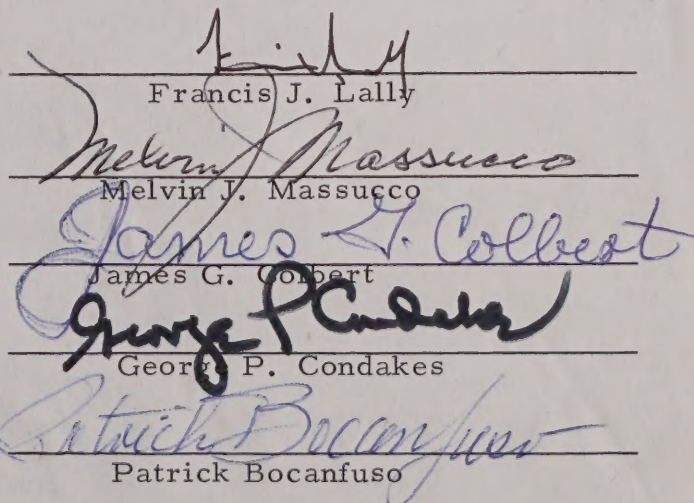 Francis J. Lally
Melvin J. Massucco
Melvin J. Massucco
James G. Colbert
James G. Colbert
George P Condakes
George P. Condakes
Patrick Bocanfuso
Patrick Bocanfuso